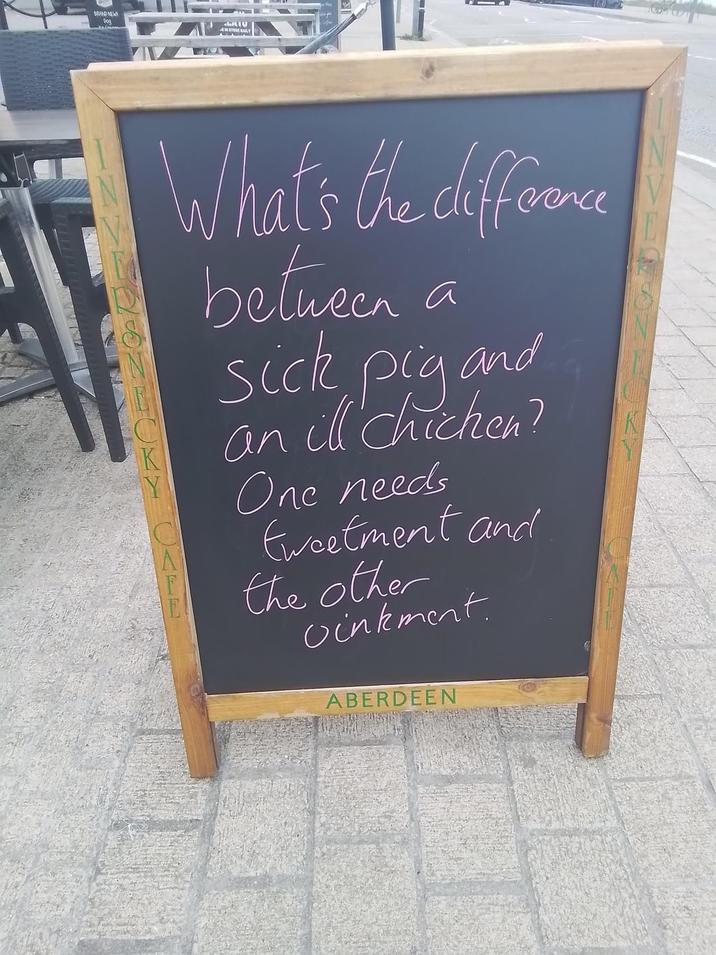 What's the difference
between a
sick pig and
an ill chicken?
One needs
tweetment and
the other
oinkment.
INVERSNECKY CAFE
INVERSNECKY CAFE
ABERDEEN